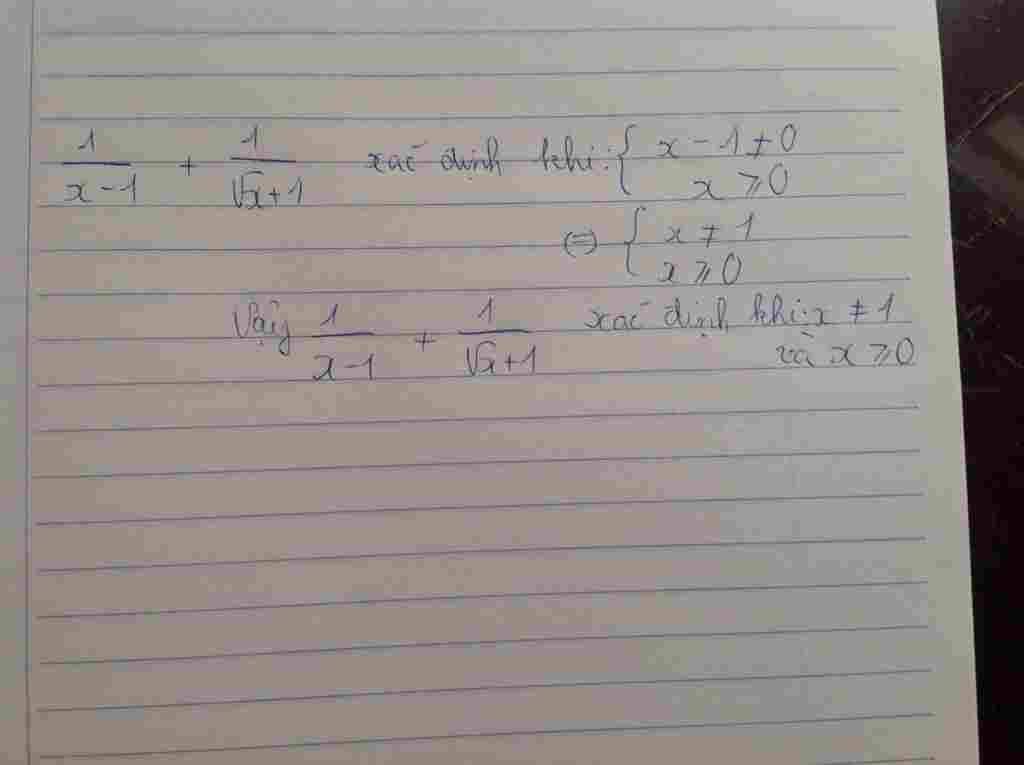 1/(x-1) + 1/(√x+1) xác định khi: { x - 1 ≠ 0
x ⩾ 0
⇔ { x ≠ 1
x ⩾ 0
Vậy 1/(x-1) + 1/(√x+1) xác định khi: x ≠ 1
và x ⩾ 0